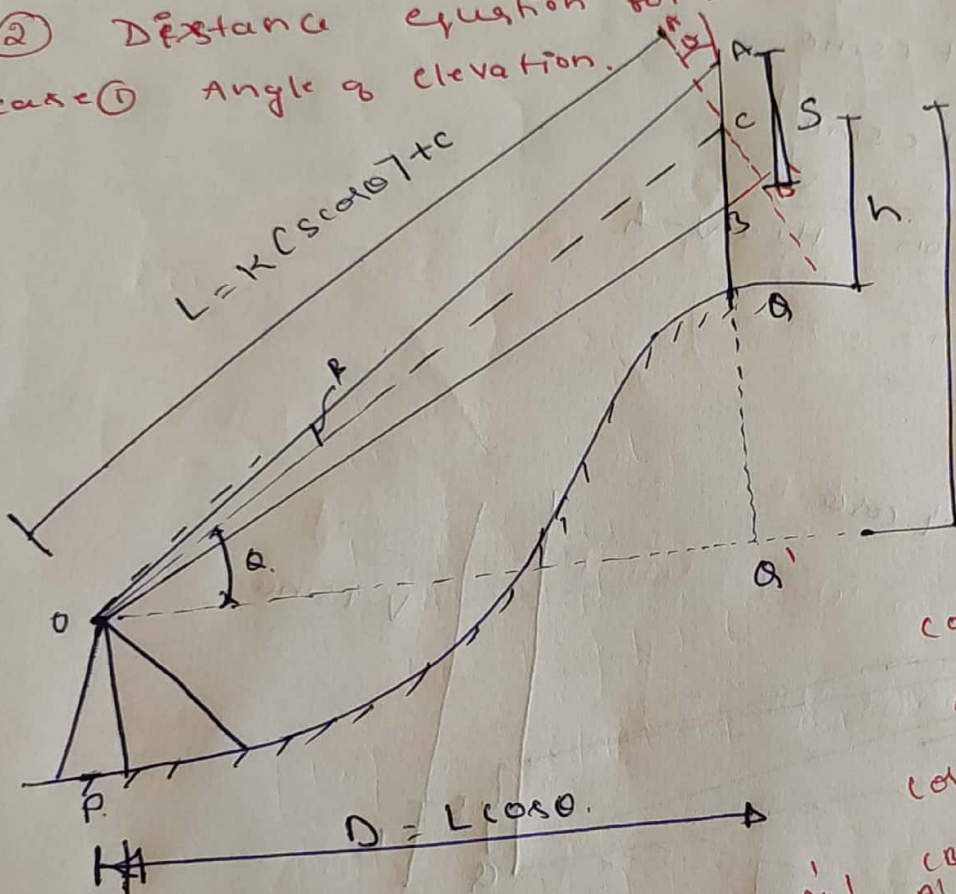 ② Distance equation
case ① Angle of elevation.
A
S
C
L = K(S cosθ) + C
B
h.
Q
θ.
O
Q'
P.
D = L cosθ.